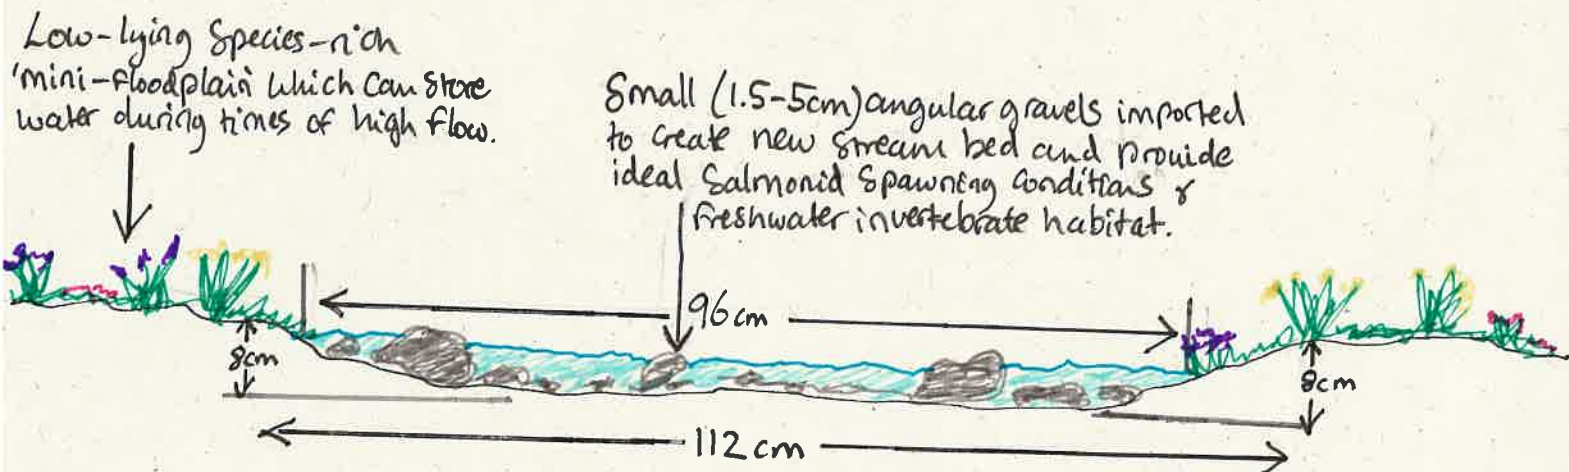 Low-lying Species-rich
'mini-floodplain' which can store
water during times of high flow.
Small (1.5-5cm) angular gravels imported
to create new stream bed and provide
ideal Salmonid Spawning conditions &
freshwater invertebrate habitat.
96cm
8cm
8cm
112cm